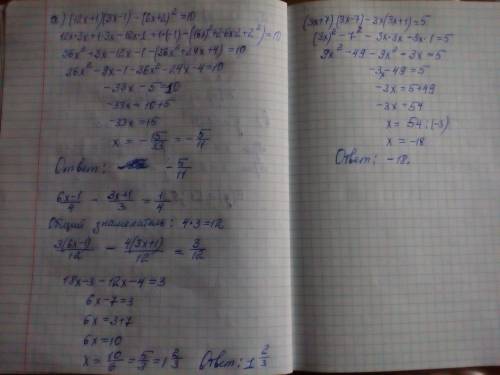 а) (12x+1)(3x-1)-(6x+2)²=10
12x·3x+1·3x-12x·1+1·(-1)-((6x)²+2·6x·2+2²)=10
36x²+3x-12x-1-(36x²+24x+4)=10
36x²-9x-1-36x²-24x-4=10
-33x-5=10
-33x=10+5
-33x=15
x=-15/33=-5/11
Ответ: -5/11
6x-1/4 - 3x+1/3 = 1/4
Общий знаменатель: 4·3=12
3(6x-1)/12 - 4(3x+1)/12 = 3/12
18x-3-12x-4=3
6x-7=3
6x=3+7
6x=10
x=10/6=5/3=1 2/3 Ответ: 1 2/3
(3x+7)(3x-7)-3x(3x+1)=5
(3x)²-7²-3x·3x-3x·1=5
9x²-49-9x²+3x=5
-3x-49=5
-3x=5+49
-3x=54
x=54:(-3)
x=-18
Ответ: -18.